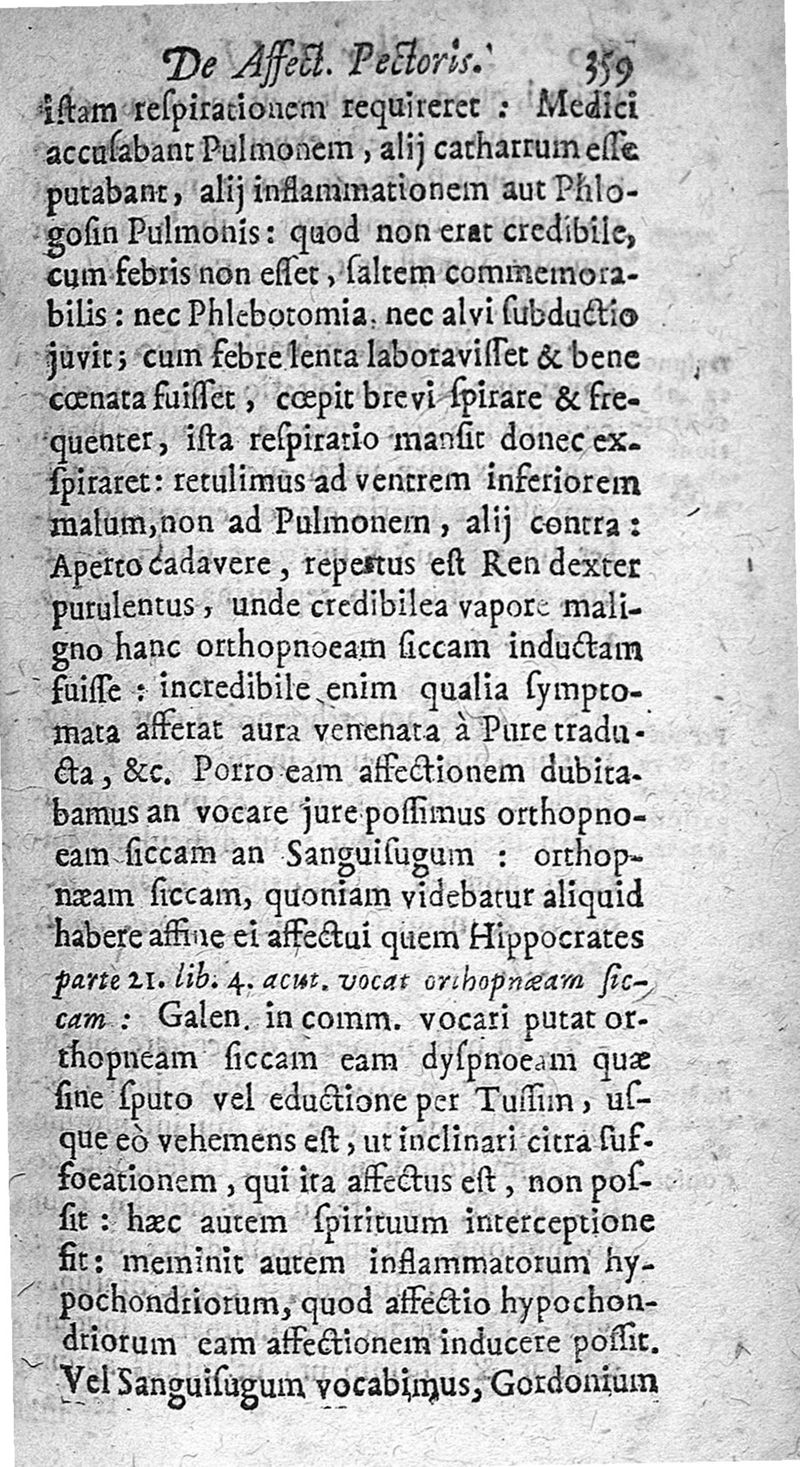 De Affect. Pectoris. 359
istam respirationem requireret : Medici
accusabant Pulmonem , alij catharrum esse
putabant, alij inflammationem aut Phlo-
gosin Pulmonis: quod non erat credibile,
cum febris non esset , saltem commemora-
bilis : nec Phlebotomia. nec alvi subductio
juvit; cum febre lenta laboravisset & bene
cœnata fuisset , cœpit brevi spirare & fre-
quenter, ista respiratio mansit donec ex-
spiraret: retulimus ad ventrem inferiorem
malum, non ad Pulmonem , alij contra :
Aperto cadavere , repertus est Ren dexter
purulentus , unde credibile a vapore mali-
gno hanc orthopnoeam siccam inductam
fuisse : incredibile enim qualia sympto-
mata afferat aura venenata à Pure tradu-
cta , &c. Porro eam affectionem dubita-
bamus an vocare jure possimus orthopno-
eam siccam an Sanguisugum : orthop-
næam siccam, quoniam videbatur aliquid
habere affine ei affectui quem Hippocrates
parte 21. lib. 4. acut. vocat orthopnæam sic-
cam : Galen. in comm. vocari putat or-
thopneam siccam eam dyspnoeam quæ
sine sputo vel eductione per Tussim , us-
que eò vehemens est , ut inclinari citra suf-
foeationem , qui ita affectus est , non pos-
sit : hæc autem spirituum interceptione
fit: meminit autem inflammatorum hy-
pochondriorum, quod affectio hypochon-
driorum eam affectionem inducere possit.
Vel Sanguisugum vocabimus, Gordonium